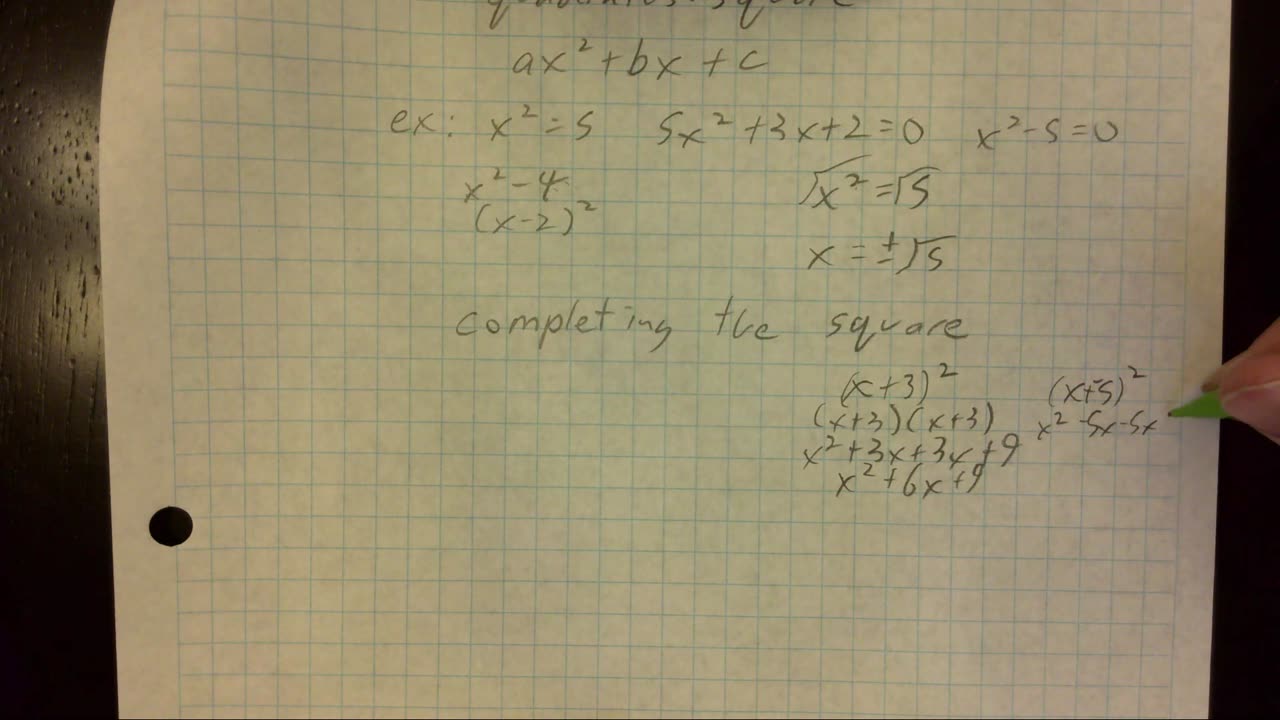 ax² + bx + c
ex: x² = 5 5x² + 3x + 2 = 0 x² - 5 = 0
x² - 4 √x² = √5
(x - 2)²
x = ± √5
completing the square
(x + 3)² (x - 5)²
(x + 3)(x + 3) x² - 5x - 5x
x² + 3x + 3x + 9
x² + 6x + 9